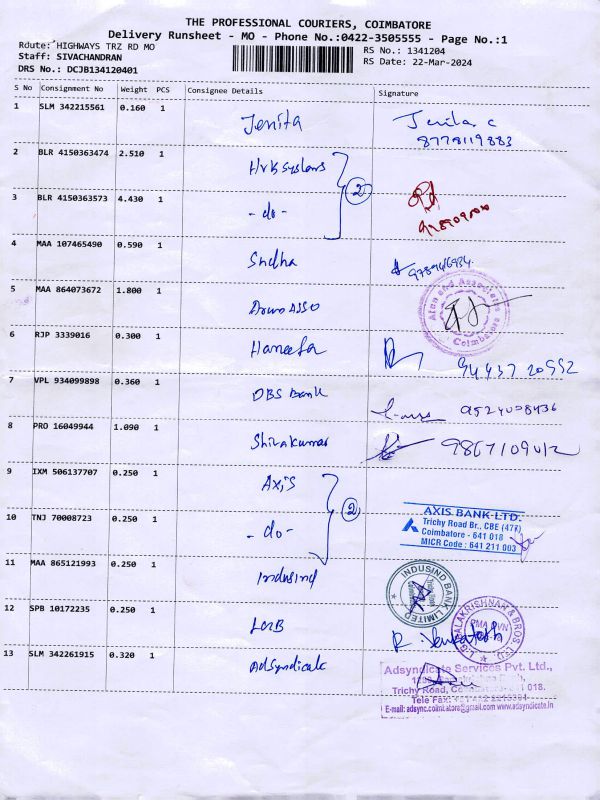 THE PROFESSIONAL COURIERS, COIMBATORE
Delivery Runsheet - MO - Phone No.:0422-3505555 - Page No.:1
Rdute: HIGHWAYS TRZ RD MO
RS No.: 1341204
Staff: SIVACHANDRAN
RS Date: 22-Mar-2024
DRS No.: DCJB134120401
S No Consignment No Weight PCS Consignee Details Signature
1 SLM 342215561 0.160 1 Jenita
8778119883
2 BLR 4150363474 2.510 1 HVK Systems
2
3 BLR 4150363573 4.430 1 -do-
4 MAA 107465490 0.590 1 Sudha
5 MAA 864073672 1.800 1
Atun and Associates
Coimbatore
6 RJP 3339016 0.300 1 Haneefa
94437 20552
7 VPL 934099898 0.360 1 DBS Bank
9524008436
8 PRO 16049944 1.090 1 Shivakumar
9 IXM 506137707 0.250 1 Axis
2
AXIS BANK LTD.
Trichy Road Br., CBE (477)
Coimbatore - 641 018
MICR Code : 641 211 003
10 TNJ 70008723 0.250 1 -do-
11 MAA 865121993 0.250 1 Indusind
INDUSIND BANK LIMITED
12 SPB 10172235 0.250 1 LGB
R. Venkatesh
L.G. BALAKRISHNAN & BROS. LTD.
13 SLM 342261915 0.320 1 AdSyndicate
Adsyndicate Services Pvt. Ltd.,
Trichy Road, Coimbatore 641 018.
Tele Fax:
E-mail: adsync.coimbatore@gmail.com www.adsyndicate.in